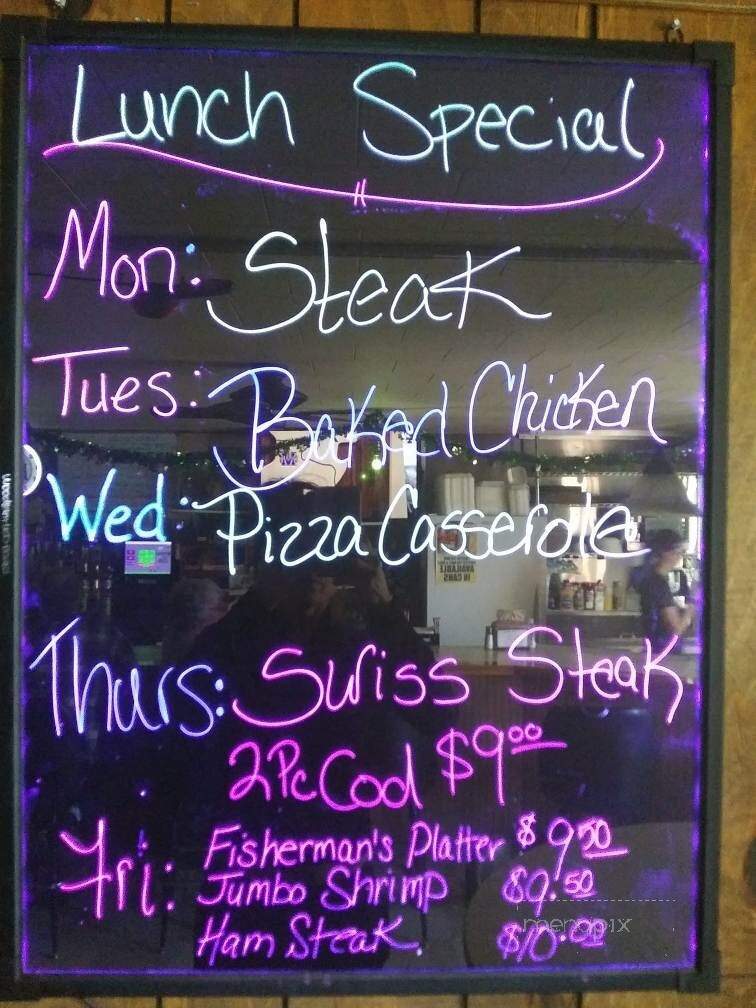 Lunch Special
Mon: Steak
Tues: Baked Chicken
Wed: Pizza Casserole
Thurs: Swiss Steak
2Pc Cod $9.00
Fri: Fisherman's Platter $9.50
Jumbo Shrimp $9.50
Ham Steak. $10.00
menupix